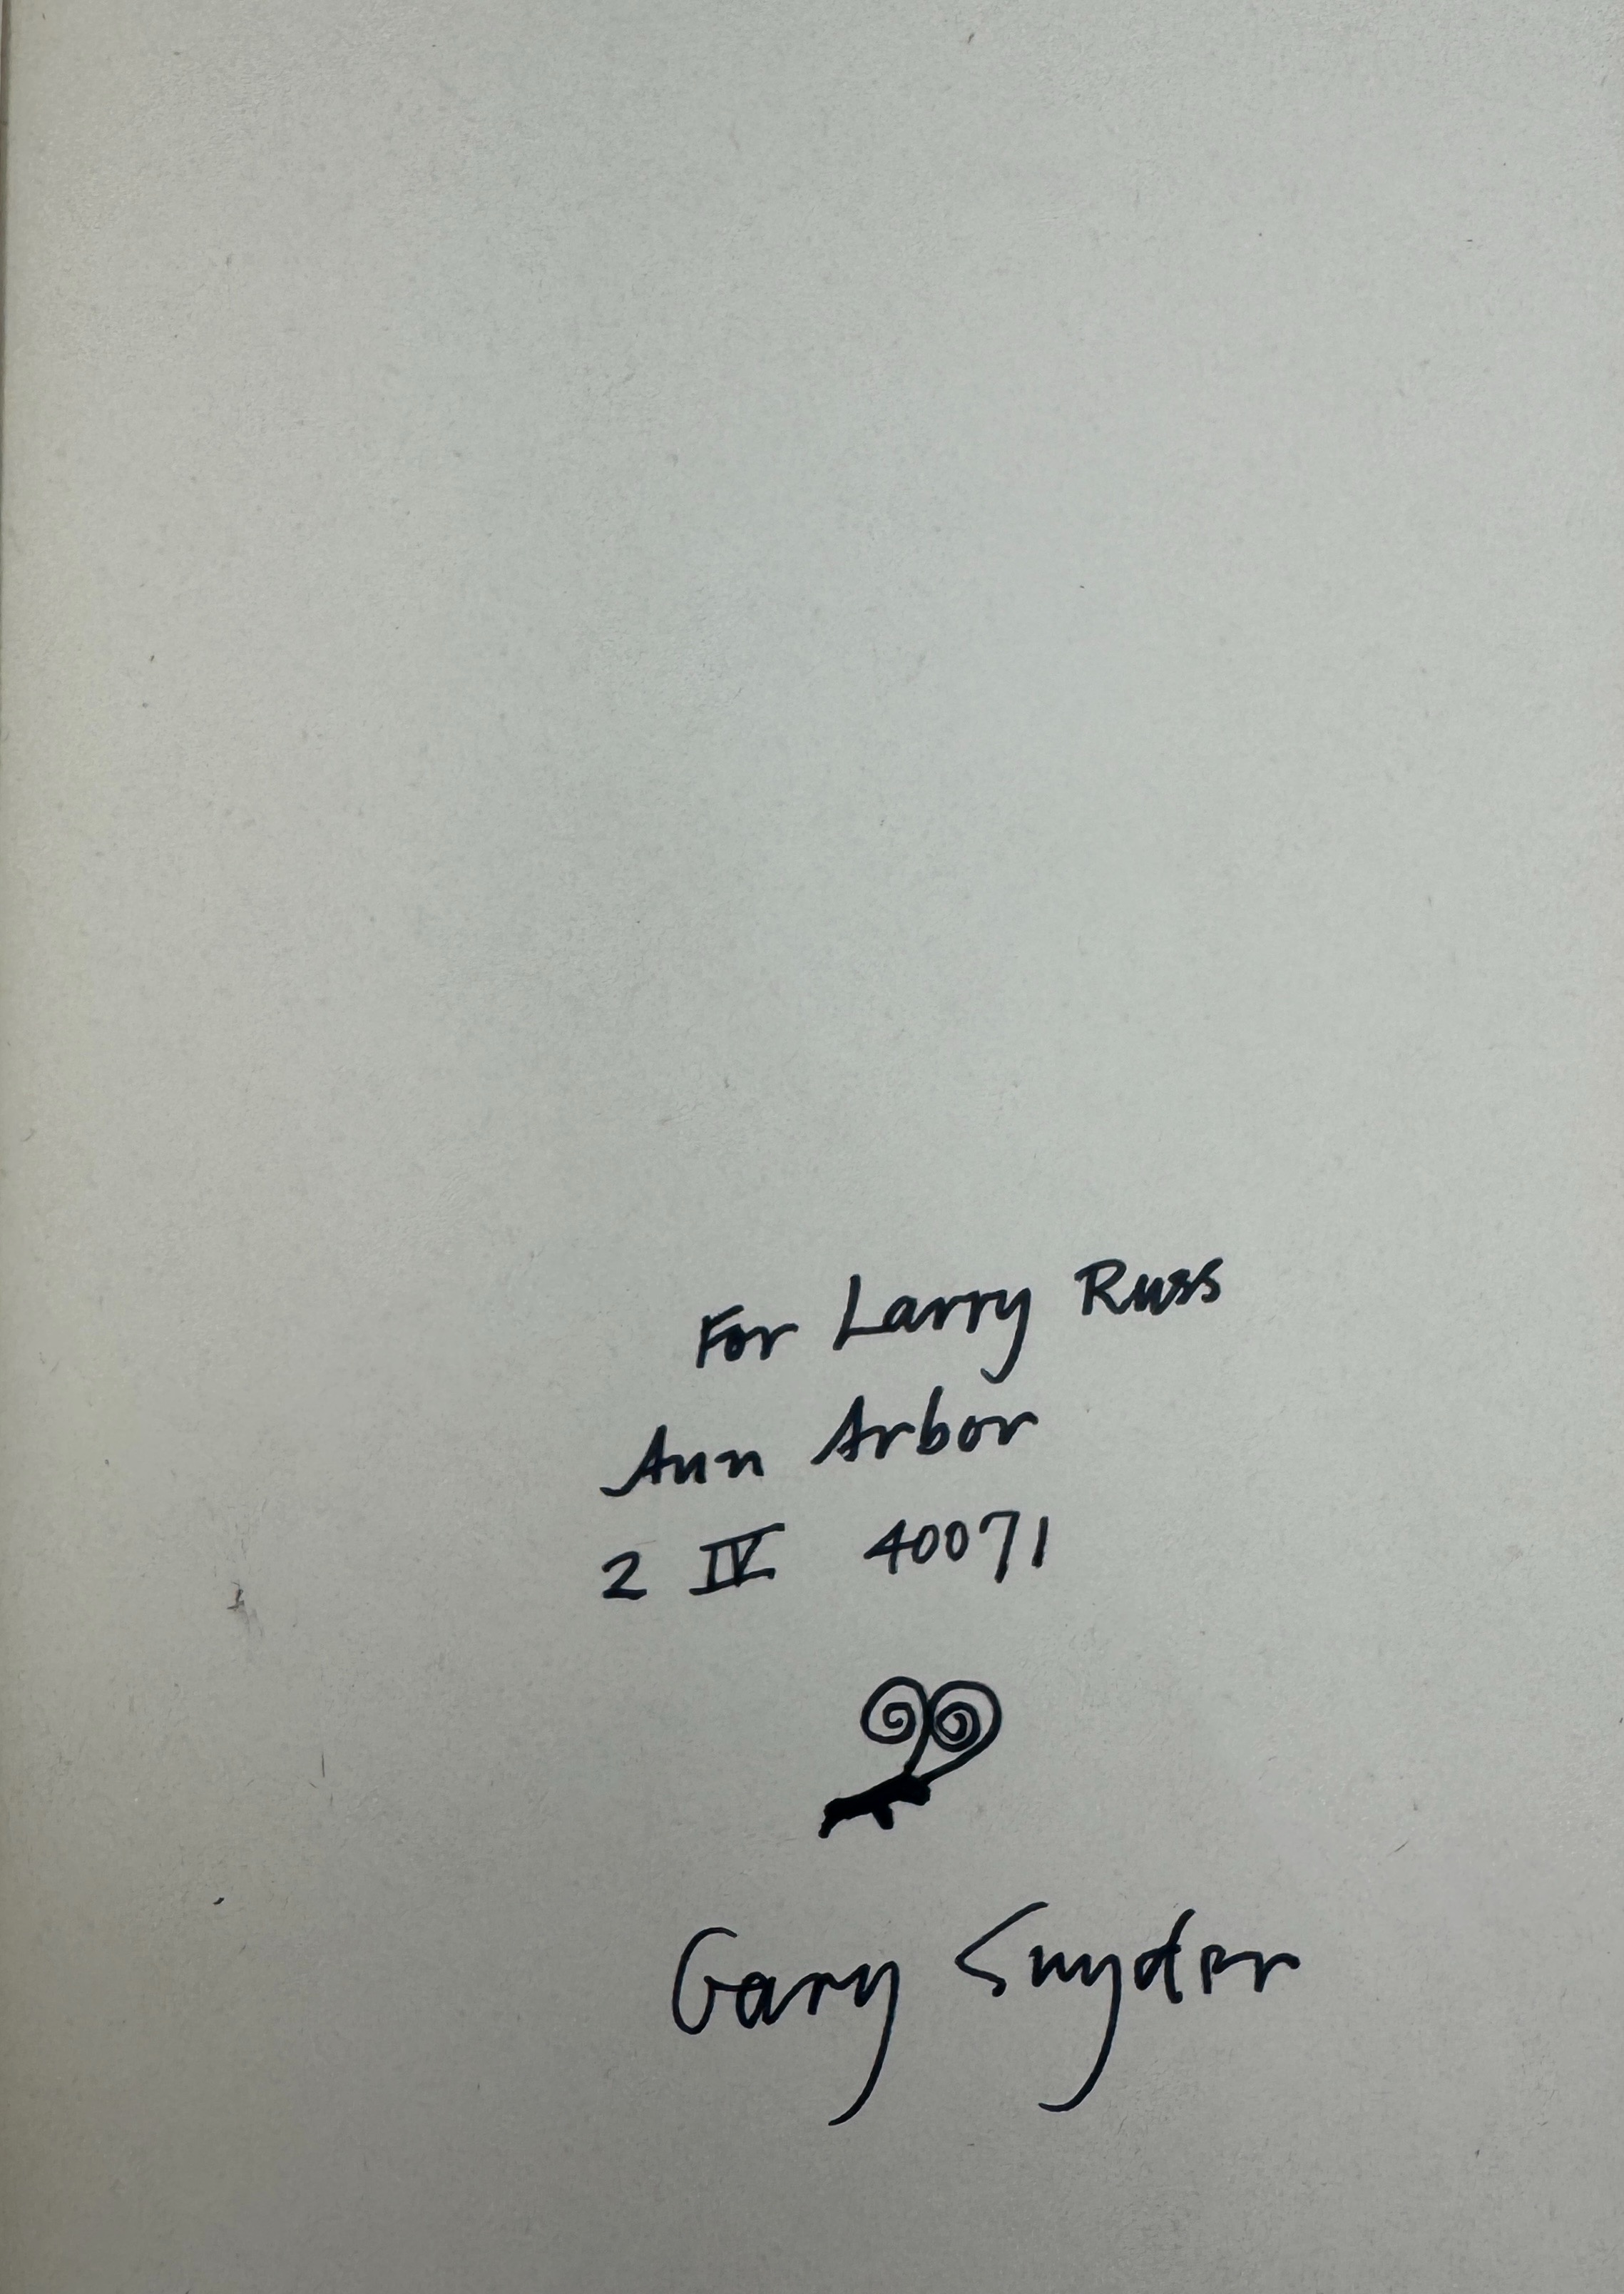 For Larry Russ
Ann Arbor
2 IV 40071
Gary Snyder